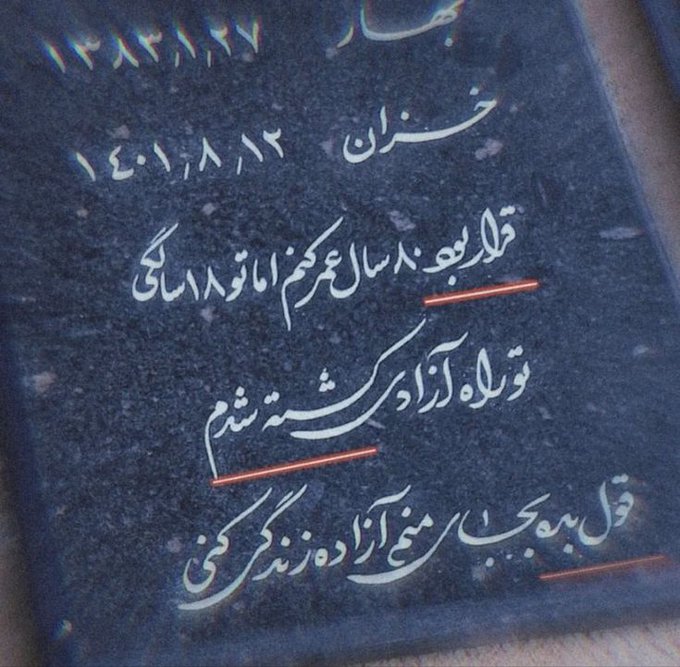 بهار ۱۳۸۳٫۱٫۲۷
خزان ۱۴۰۱٫۸٫۱۲
قرار بود ۸۰ سال عمر کنم اما تو ۱۸ سالگی
تو راه آزادی کشته شدم
قول بده بجای منم آزاده زندگی کنی